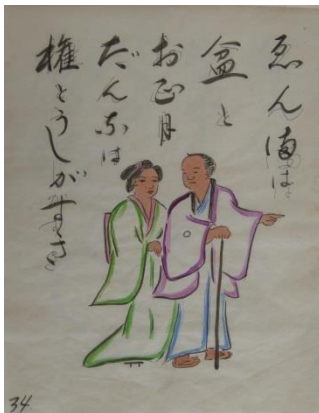 ゑん満は
盆と
お正月
だんなは
権とうしがすき
34